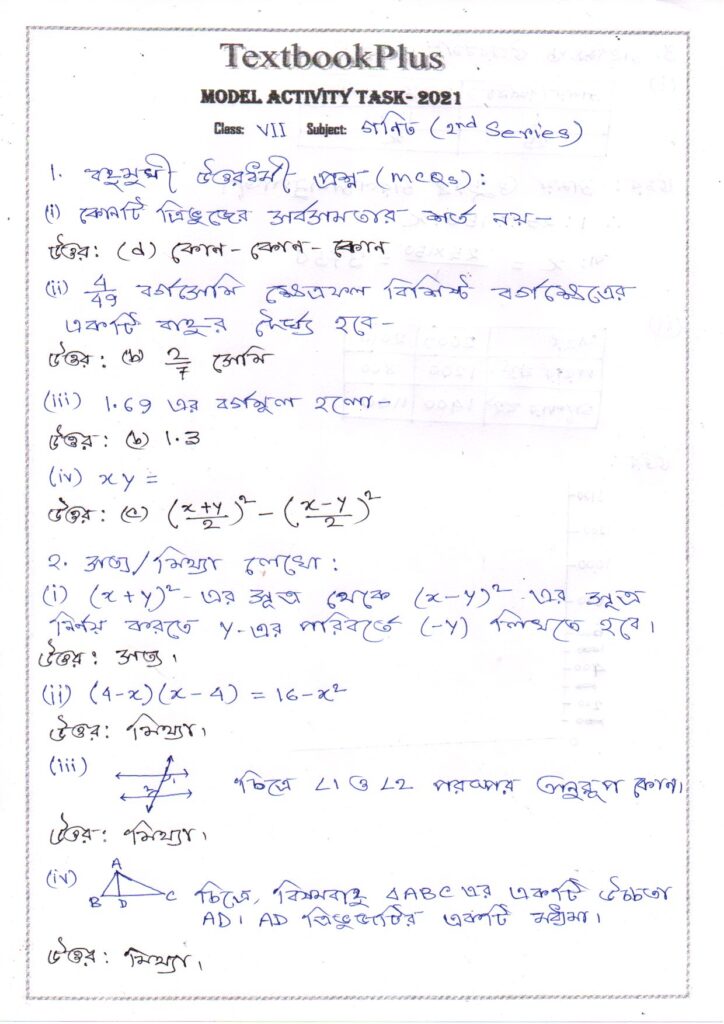 TextbookPlus
MODEL ACTIVITY TASK- 2021
Class: VII Subject: গণিত (2nd Series)
1. বহুমুখী উত্তরধর্মী প্রশ্ন (MCQs):
(i) কোনটি ত্রিভুজের সর্বসমতার শর্ত নয়-
উত্তর: (d) কোন-কোন-কোন
(ii) 4/49 বর্গসেমি ক্ষেত্রফল বিশিষ্ট বর্গক্ষেত্রের
একটি বাহুর দৈর্ঘ্য হবে-
উত্তর: (b) 2/7 সেমি
(iii) 1.69 এর বর্গমূল হলো-
উত্তর: (b) 1.3
(iv) xy =
উত্তর: (c) ((x+y)/2)² - ((x-y)/2)²
২. সত্য/মিথ্যা লেখো:
(i) (x+y)²-এর সূত্র থেকে (x-y)² এর সূত্র
নির্ণয় করতে y-এর পরিবর্তে (-y) লিখতে হবে।
উত্তর: সত্য।
(ii) (4-x)(x-4) = 16-x²
উত্তর: মিথ্যা।
(iii) 1 2 চিত্রে ∠1 ও ∠2 পরস্পর অনুরূপ কোন।
উত্তর: মিথ্যা।
(iv) A B D C চিত্রে, বিষমবাহু ΔABC এর একটি উচ্চতা
AD। AD ত্রিভুজটির একটি মধ্যমা।
উত্তর: মিথ্যা।